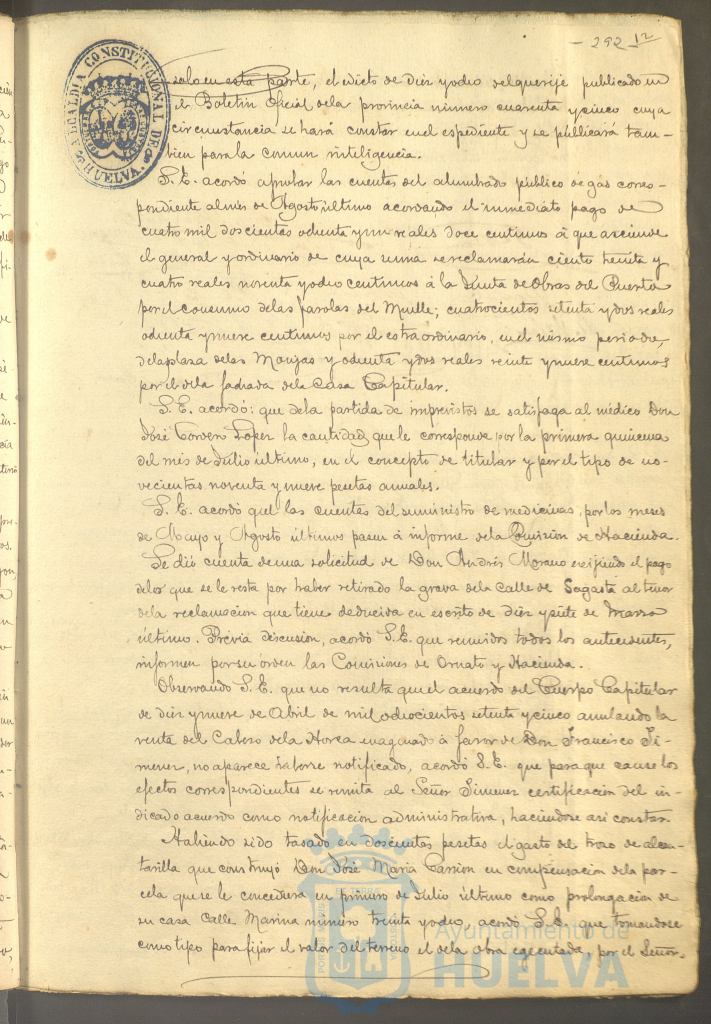 - 292 - 12
ALCALDIA CONSTITUCIONAL DE HUELVA
solo en esta parte, el edicto de diez y ocho del que rije publicado en
el Boletin Oficial de la provincia número cuarenta y cinco cuya
circunstancia se hará constar en el espediente y se publicará tam-
bien para la comun inteligencia.
S. E. acordó aprobar las cuentas del alumbrado público de gas corres-
pondiente al mes de Agosto último acordando el inmediato pago de
cuatro mil doscientos ochenta y un reales doce centimos á que asciende
el general y ordinario de cuya suma se reclamarán ciento treinta y
cuatro reales noventa y ocho centimos á la Junta de Obras del Puerto
por el consumo de las farolas del Muelle; cuatrocientos setenta y dos reales
ochenta y nueve centimos por el estraordinario, en el mismo periodo,
de la plaza de las Monjas y ochenta y dos reales veinte y nueve centimos
por el de la fachada de la Casa Capitular.
S. E. acordó: que de la partida de imprevistos se satisfaga al médico Don
José López la cantidad que le corresponde por la primera quincena
del mes de Julio último, en el concepto de titular y por el tipo de no-
vecientas noventa y nueve pesetas anuales.
S. E. acordó que las cuentas del suministro de medicinas, por los meses
de Mayo y Agosto últimos pasen á informe de la Comision de Hacienda.
Se dió cuenta de una solicitud de Don Andrés Morano exijiendo el pago
de lo que se le resta por haber retirado la grava de la calle de Sagasta al tenor
de la reclamacion que tiene deducida en escrito de diez y siete de Marzo
último. Prévia discusion, acordó S. E. que reunidos todos los antecedentes,
informen por su órden las Comisiones de Ornato y Hacienda.
Observando S. E. que no resulta que el acuerdo del Cuerpo Capitular
de diez y nueve de Abril de mil ochocientos setenta y cinco anulando la
venta del Cabezo de la Horca enagenado á favor de Don Francisco Ji-
menez, no aparece haberse notificado, acordó S. E. que para que cause los
efectos correspondientes se remita al Señor Jimenez certificacion del in-
dicado acuerdo como notificacion administrativa, haciendose asi constar.
Habiendo sido tasado en doscientas pesetas el gasto del trozo de alcan-
tarilla que construyó Don José María Carrion en compensacion de la par-
cela que se le concediera en primero de Julio último como prolongacion de
su casa Calle Marina número treinta y ocho, acordó S. E. que tomandose
como tipo para fijar el valor del terreno el de la obra egecutada, por el Señor
Ayuntamiento de
HUELVA